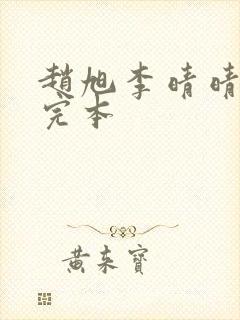 趙旭李晴晴
完本
黄来寶